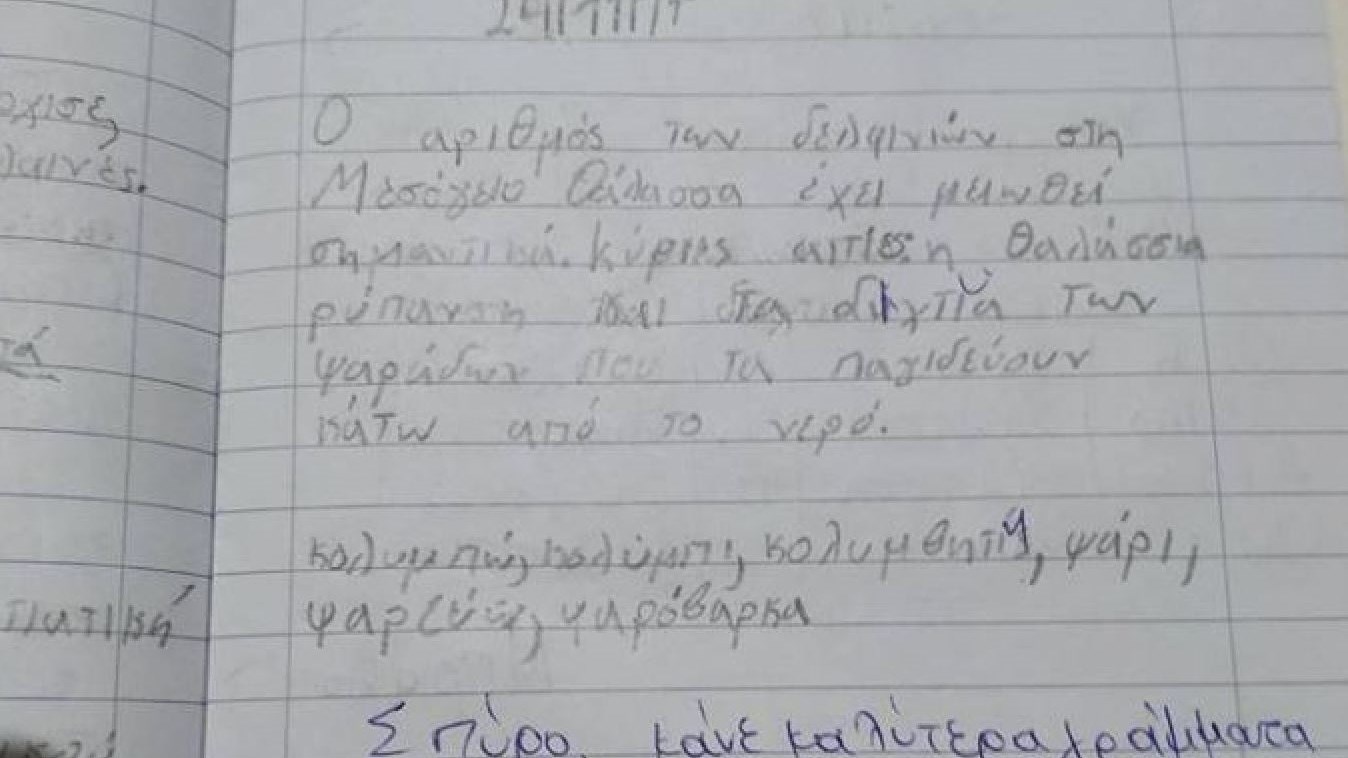 οχισε,
λαινές.
τά
τιατική
24/11/17
Ο αριθμός των δελφινιών στη
Μεσόγειο θάλασσα έχει μειωθεί
σημαντικά. Κύριες αιτίες: η θαλάσσια
ρύπανση και τα δίχτυα των
ψαράδων που τα παγιδεύουν
κάτω από το νερό.
κολυμπώ, κολύμπι, κολυμβητής, ψάρι,
ψαρεύω, ψαρόβαρκα
Σπύρο, κάνε καλύτερα γράμματα